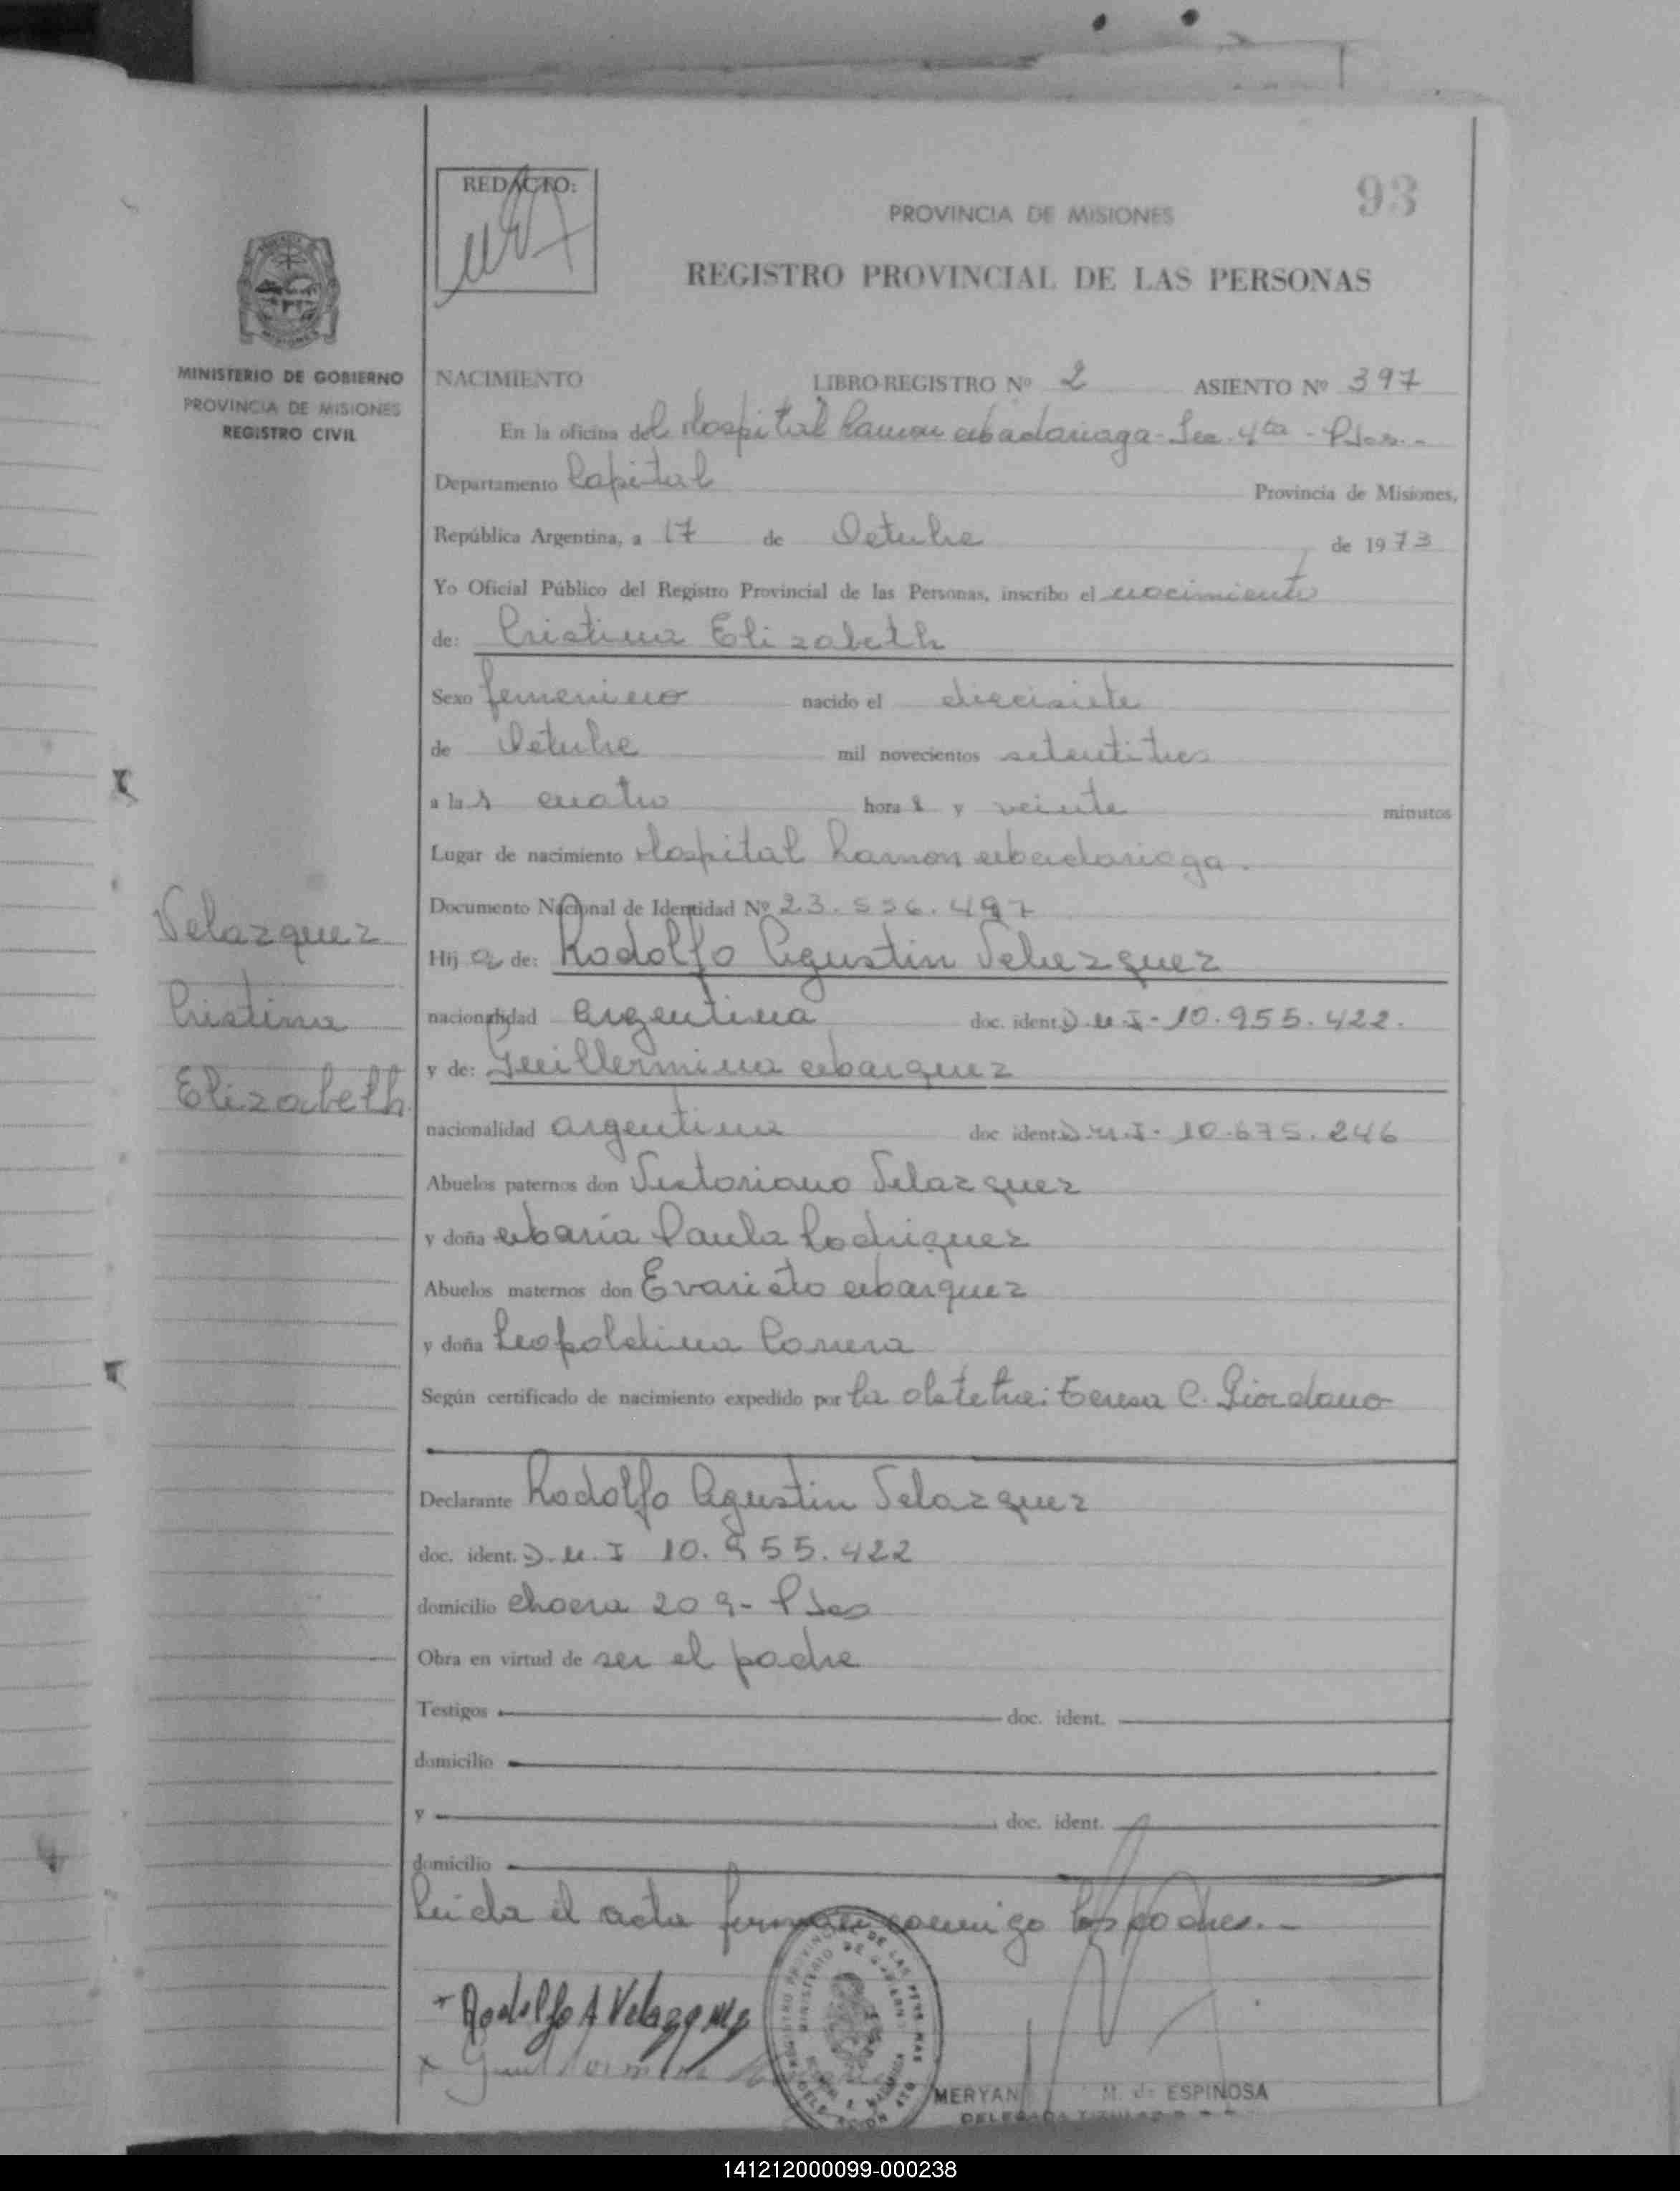 93
REDACTO:
PROVINCIA DE MISIONES
REGISTRO PROVINCIAL DE LAS PERSONAS
MINISTERIO DE GOBIERNO
PROVINCIA DE MISIONES
REGISTRO CIVIL
NACIMIENTO LIBRO REGISTRO Nº 2 ASIENTO Nº 397
En la oficina del Hospital Ramon Madariaga - Sec. 4ta - Pdas.-
Departamento Capital Provincia de Misiones,
República Argentina, a 17 de Octubre de 1973
Yo Oficial Público del Registro Provincial de las Personas, inscribo el nacimiento
de: Cristina Elizabeth
Sexo femenino nacido el diecisiete
de Octubre mil novecientos setentitres
a las cuatro horas y veinte minutos
Lugar de nacimiento Hospital Ramon Madariaga.
Documento Nacional de Identidad Nº 23.556.497
Velazquez
Cristina
Elizabeth
Hija de: Rodolfo Agustin Velazquez
nacionalidad Argentina doc. ident. D.N.I - 10.955.422.
y de: Guillermina Marquez
nacionalidad argentina doc ident. D.N.I - 10.675.246
Abuelos paternos don Victoriano Velazquez
y doña María Paula Rodriguez
Abuelos maternos don Evaristo Marquez
y doña Leopoldina Correa
Según certificado de nacimiento expedido por la obstetra: Teresa C. Giordano
Declarante Rodolfo Agustin Velazquez
doc. ident. D.N.I 10.955.422
domicilio Chacra 209 - Pdas
Obra en virtud de ser el padre
Testigos doc. ident.
domicilio
y doc. ident.
domicilio
Leida el acta firman conmigo los padres.-
+ Rodolfo A Velazquez
x Guillermina
MERYAN M. de ESPINOSA
DELEGADA TITULAR
141212000099-000238